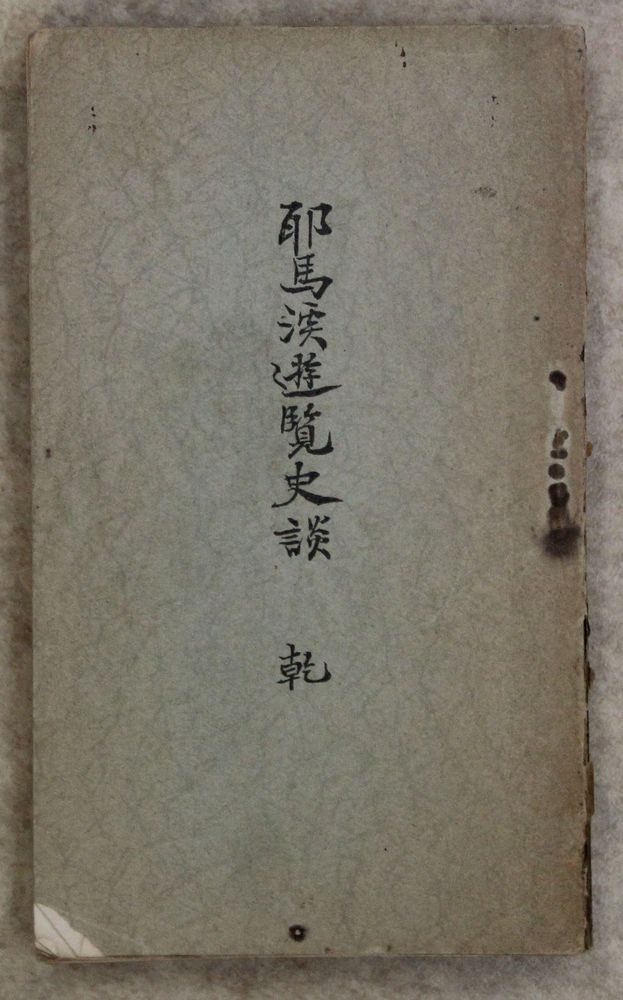 耶馬渓遊覧史談 乾